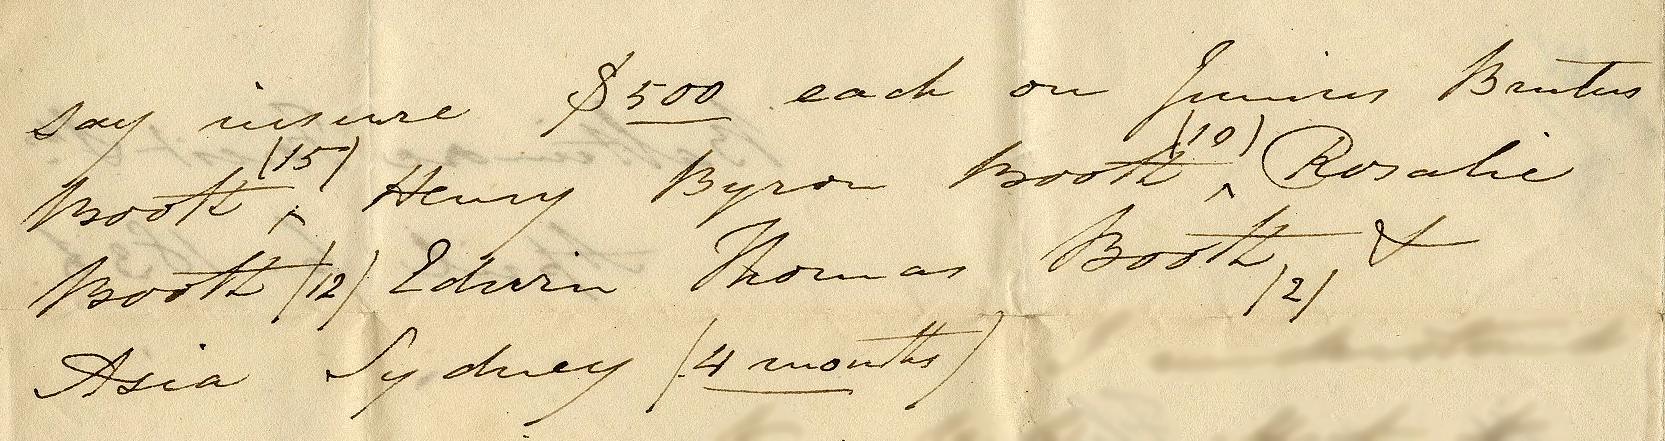 say insure $500 each on Junius Brutus
Booth ^ (15) Henry Byron Booth ^ (10) Rosalie
Booth (12) Edwin Thomas Booth (2) &
Asia Sydney (4 months)